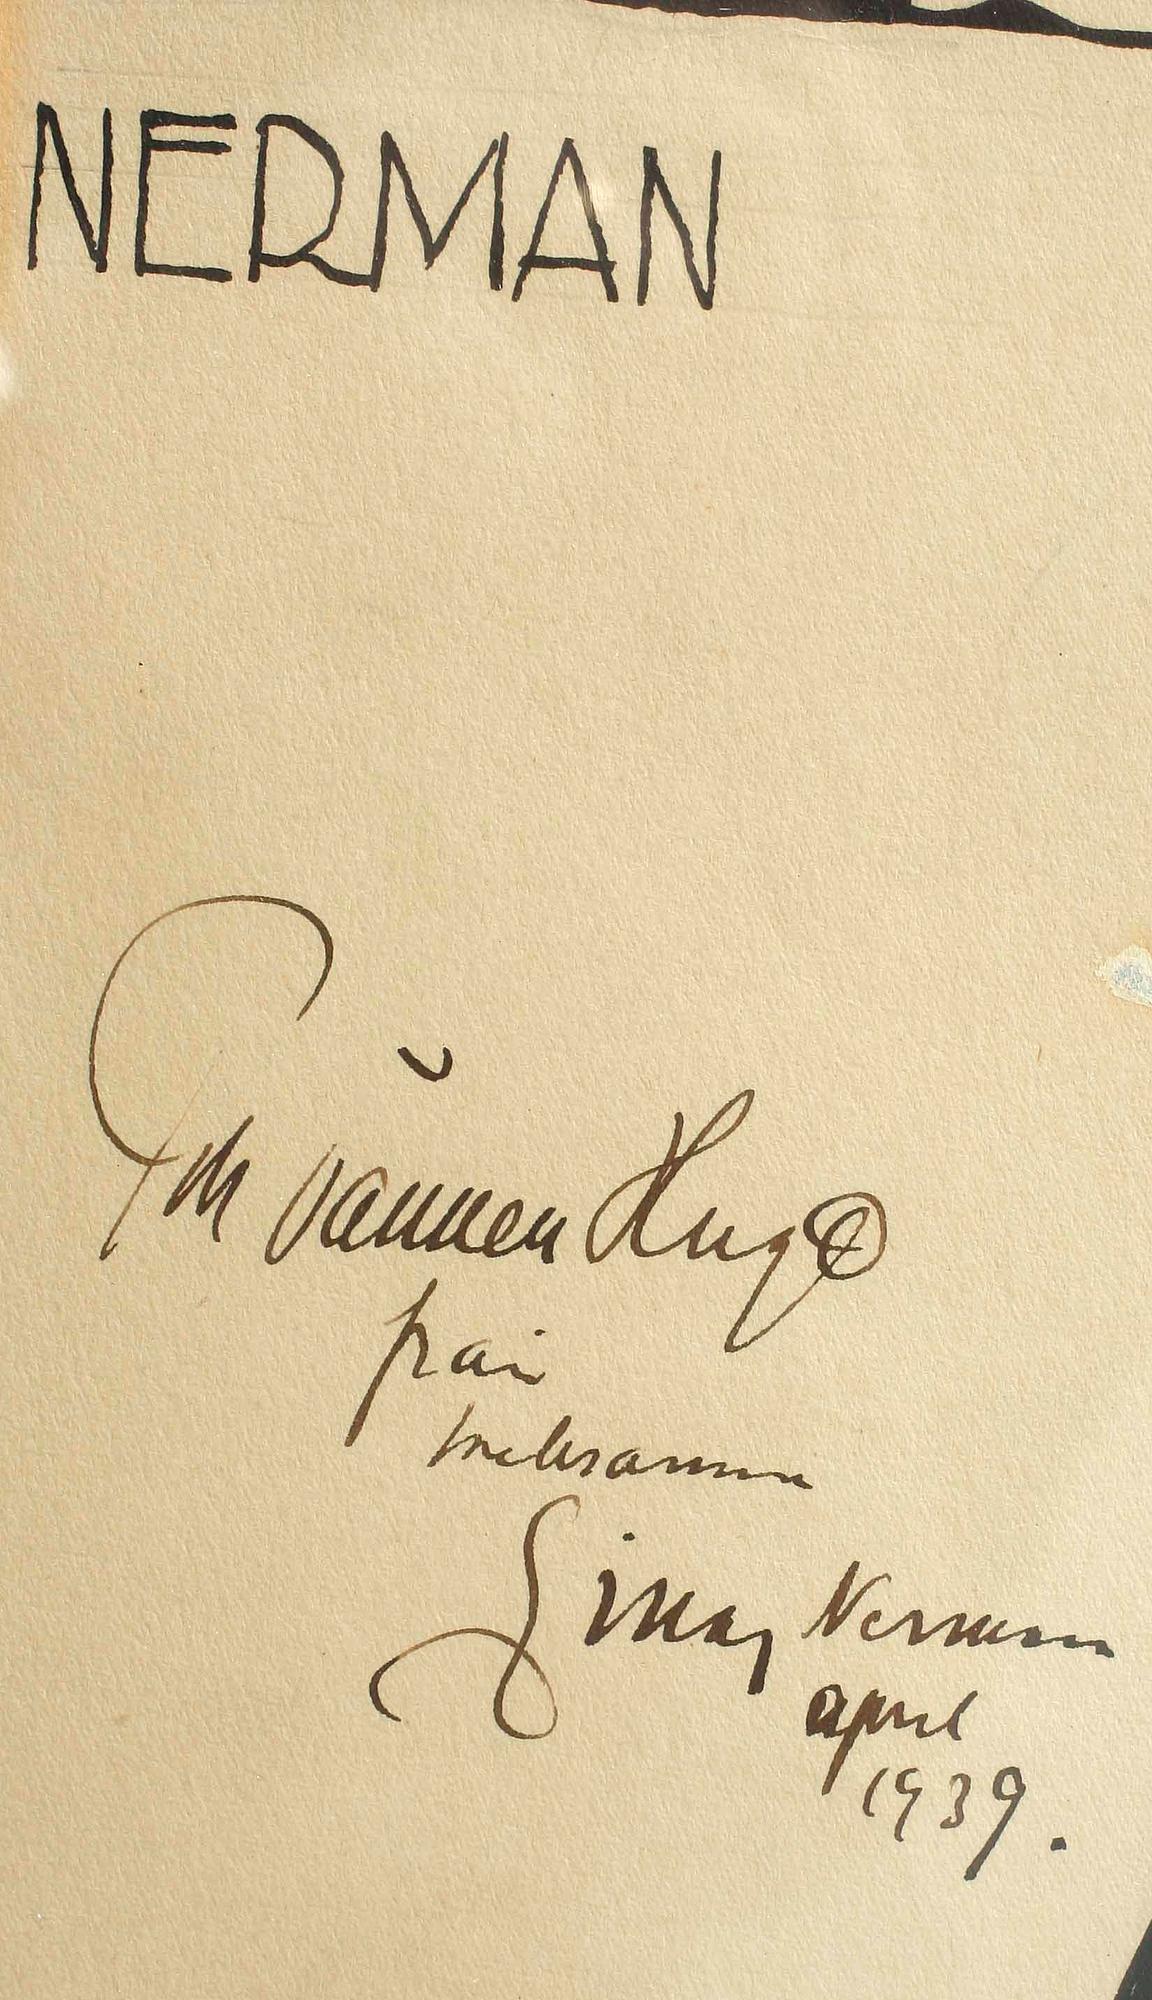 NERMAN
Till vännen Hugo
från
tillgivne
Einar Nerman
april
1939.